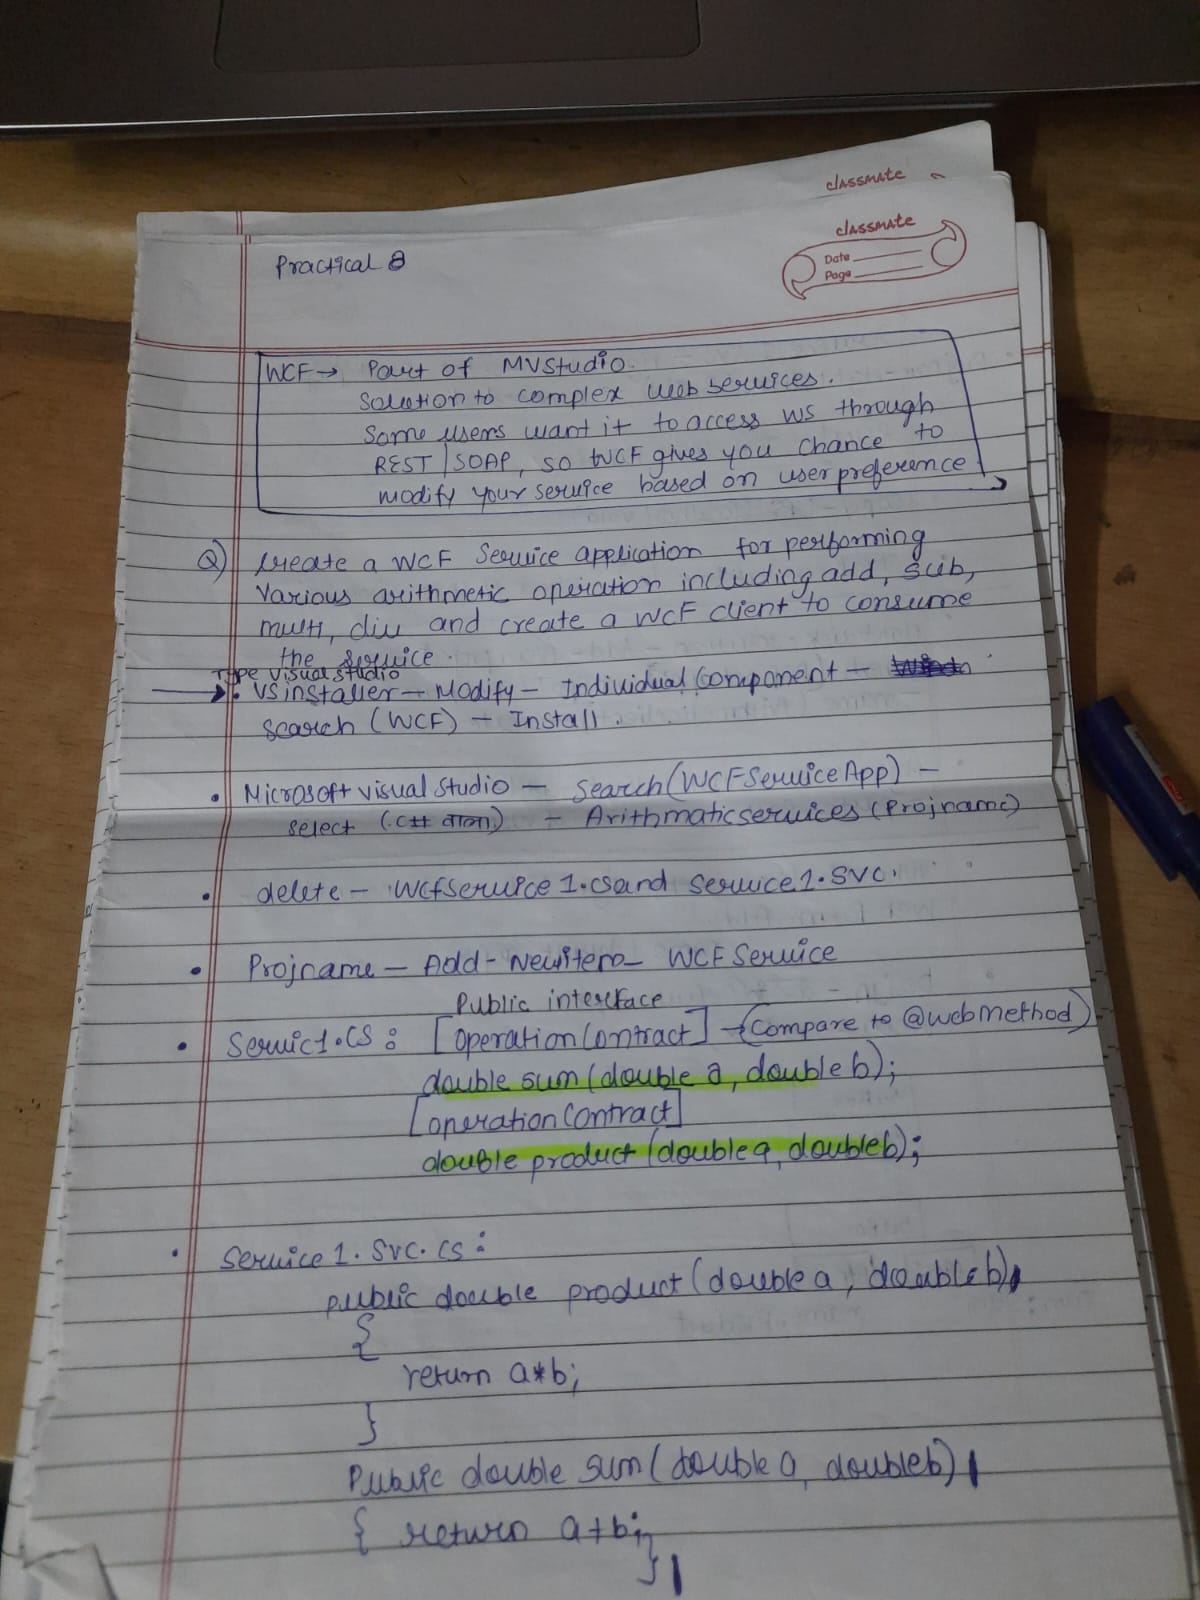 classmate
classmate
Date
Page
Practical 8
WCF → Part of MVStudio.
Solution to complex web services.
Some users want it to access WS through
REST | SOAP, so WCF gives you chance to
modify your service based on user preference
Q) Create a WCF Service application for performing
various arithmetic operation including add, sub,
multi, div and create a WCF client to consume
the service.
Type visual studio
→ • VS installer - Modify - Individual Component -
search (WCF) - Install.
• Microsoft visual Studio - Search (WCF Service App) -
select (.C# वाला) - Arithmatic services (Projname)
• delete - Wcfservice 1.cs and service 1.svc.
• Projname - Add - Newitem - WCF Service
Public interface
• Servic1.CS : [operation Contract] → (Compare to @webmethod)
double sum (double a, double b);
[operation Contract]
double product (double a, double b);
• Service 1. SVC. CS :
public double product (double a, double b)
{
return a*b;
}
Public double sum (double a, double b)
{ return a+b;
}